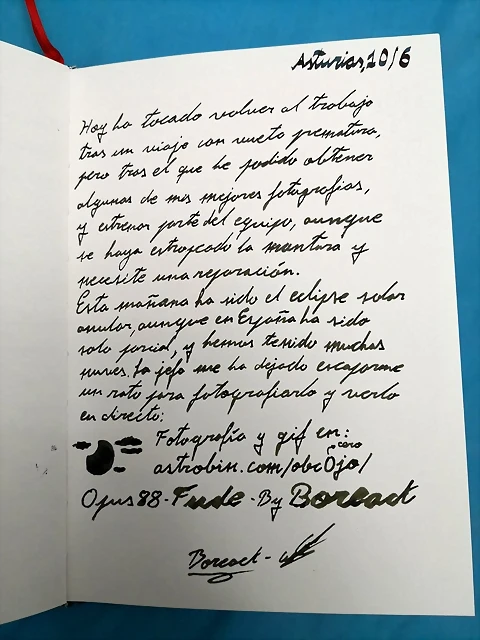 Asturias, 10/6
Hoy ha tocado volver al trabajo
tras un viaje con vuelta prematura,
pero tras el que he podido obtener
algunas de mis mejores fotografías,
y estrenar parte del equipo, aunque
se haya estropeado la montura y
necesite una reparación.
Esta mañana ha sido el eclipse solar
anular, aunque en España ha sido
solo parcial, y hemos tenido muchas
nubes. La jefa me ha dejado escaparme
un rato para fotografiarlo y verlo
en directo:
Fotografía y gif en:
cero
astrobin.com/obc0jo/
Opus88-Fude-By Boreact
Boreact-